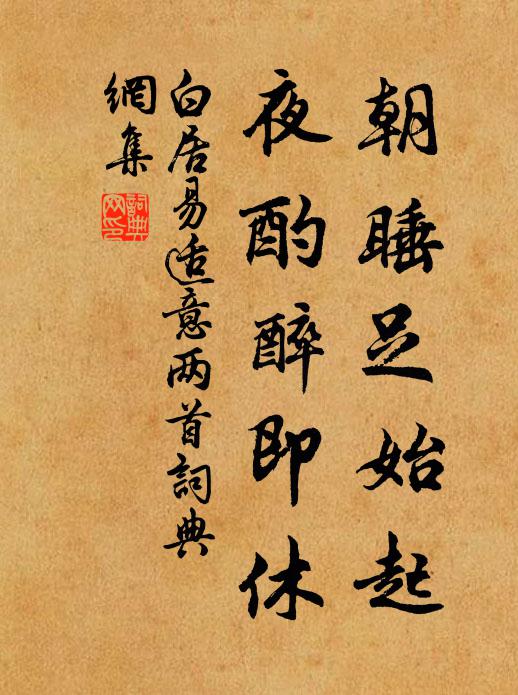 朝睡足始起
夜酌醉即休
白居易适意两首詞典
網集
詞典
网印